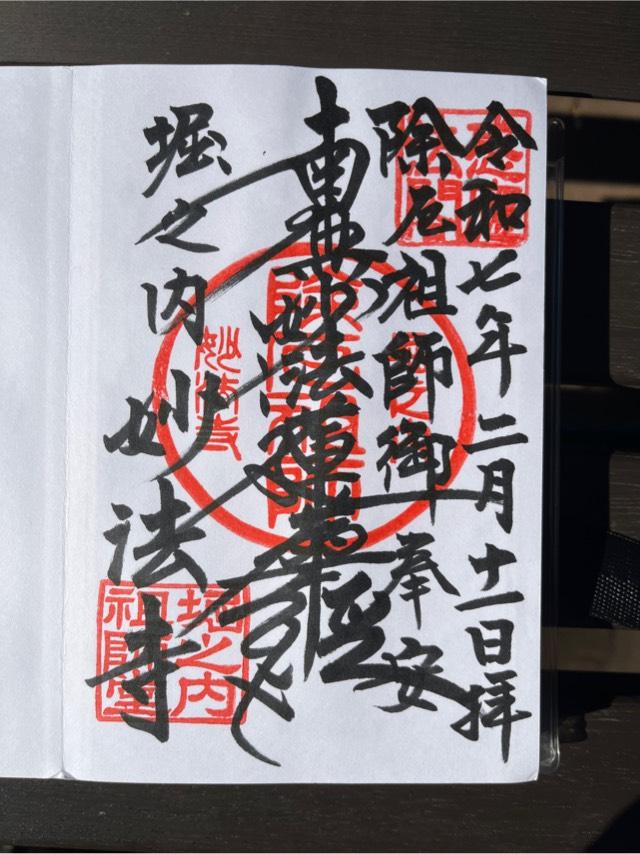 令和七年二月十一日拝
除厄祖師御奉安
南無妙法蓮華経
堀之内妙法寺
除厄祖師
妙法寺
堀之内
祖師堂